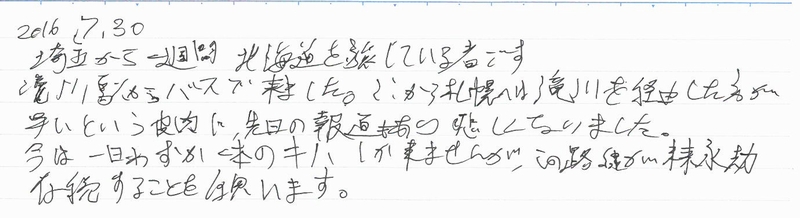 2016.7.30
埼玉から一週間 北海道を旅している者です
滝川駅からバスで来ました。ここから札幌へは滝川を経由した方が
早いという皮肉に、先日の報道もあり悲しくなりました。
今は一日わずか一本のキハしか来ませんが、この路線が未来永劫
存続することを願います。